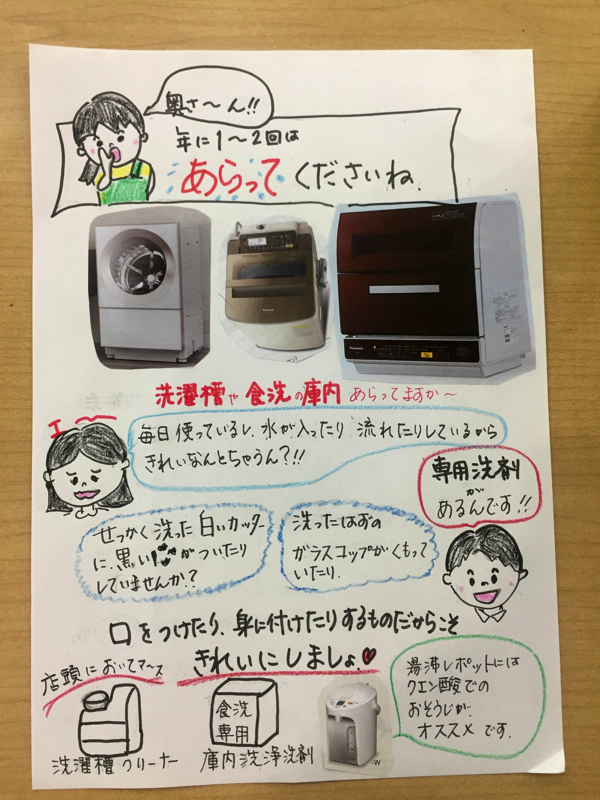 奥さ〜ん!!
年に1〜2回は
あらってくださいね.
Panasonic
Panasonic
洗濯槽や食洗の庫内あらってますか〜
エ〜
毎日使っているし、水が入ったり流れたりしているから
きれいなんとちゃうん?!!
専用洗剤
が
あるんです!!
せっかく洗った白いカッター
に、黒いがついたり
していませんか?
洗ったはずの
ガラスコップがくもって
いたり.
口をつけたり、身に付けたりするものだからこそ
きれいにしましょ.
店頭においてマース
洗濯槽クリーナー
食洗
専用
庫内洗浄洗剤
-W
湯沸しポットには
クエン酸での
おそうじが.
オススメです.